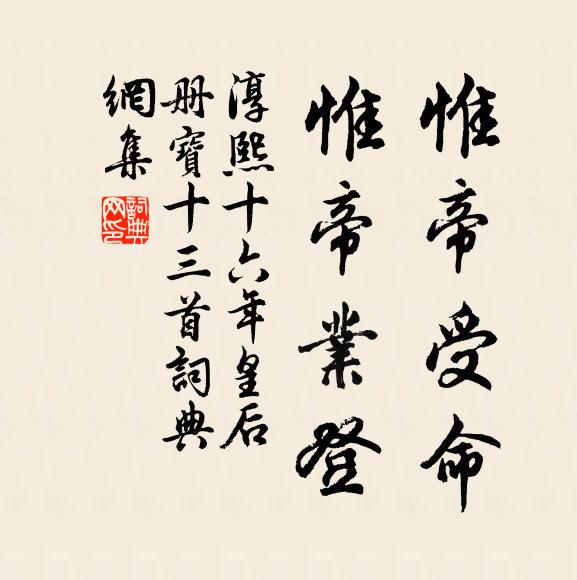 惟帝受命
惟帝業登
淳熙十六年皇后
册寶十三首詞典
網集
詞典
网印